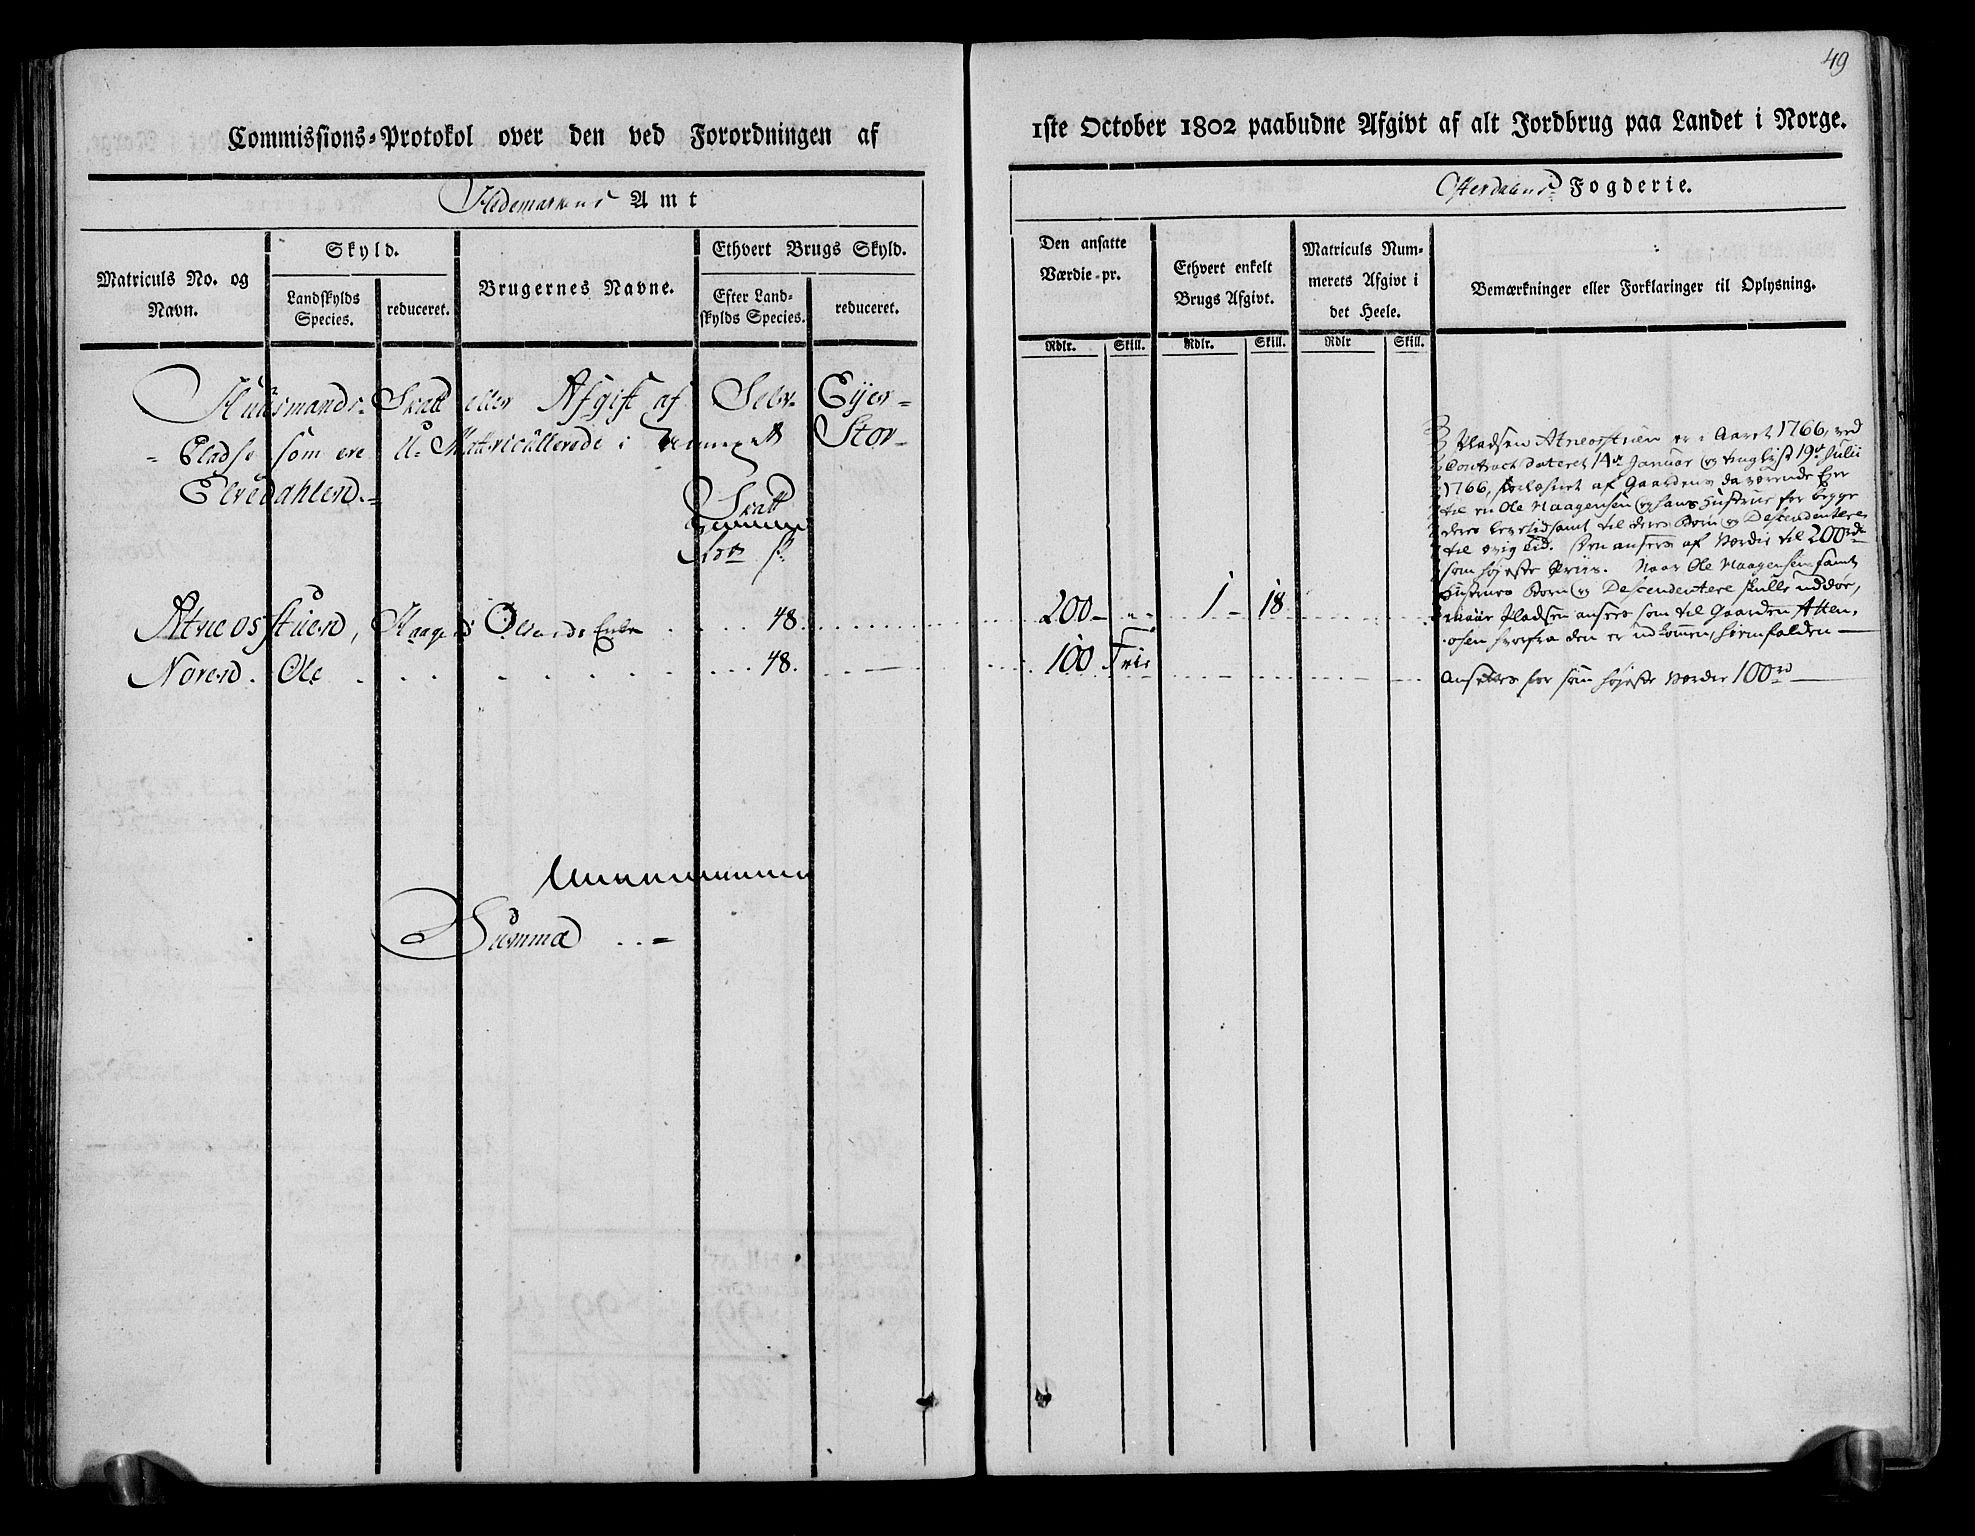 49
Commissions-Protokol over den ved Forordningen af
1ste October 1802 paabudne Afgivt af alt Jordbrug paa Landet i Norge.
Hedemarkens Amt
Østerdalens Fogderie.
Matriculs No. og Navn.
Skyld.
Landskylds Species.
reduceret.
Brugernes Navne.
Ethvert Brugs Skyld.
Efter Landskylds Species.
reduceret.
Den ansatte Værdie pr.
Ethvert enkelt Brugs Afgivt.
Matriculs Nummerets Afgivt i det Heele.
Bemærkninger eller Forklaringer til Oplysning.
Rdlr. Skill. Rdlr. Skill. Rdlr Skill.
Huusmands-Skatt eller Afgift af Selv-Eyer-
Pladse som ere U-Matricullerede i Stor-
Elvedahlen.
Skatt
Atneosstuen, Haagen Olsens Enke 48. 200 - " - 1 - 18
Noren. Ole 48. 100 Frie
Pladsen Atneosstuen er i Aaret 1766, ved
Contract dateret 14de Januar og tinglyst 19de Julii
1766, af Gaardens daværende Eyer
til en Ole Haagensen og hans Hustrue for begge
deres levetid samt til deres Børn og Descendentere
til evig tid. Den ansees af Værdie til 200rdr
som højeste Priis. Naar Ole Haagensen samt
Hustrues Børn og Descendentere skulle uddøe,
maae Pladsen ansees som til Gaarden Atten-
osen hvorfra den er udkommen, hiemfalden
Ansettes for sin højeste Værdie 100rd
Summa